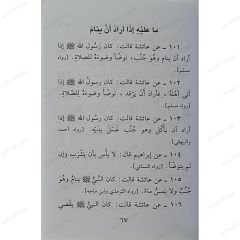 ما عليه إذا أراد أن ينام
١٠١ - عن عائشة قالت: كان رسول الله ﷺ إذا
أراد أن ينام وهو جُنُب، توضأ وضوءه للصلاة. [رواه
مسلم].
١٠٢ - عن عائشة قالت: كان رسول الله ﷺ إذا
أتى أهله، فأراد أن يرقد، توضأ وضوءه للصلاة.
١٠٣ - عن عائشة قالت: كان رسول الله ﷺ إذا
أراد أن يأكل وهو جنب غسل يديه. [رواه أحمد
والبيهقي]
١٠٤ - عن إبراهيم قال: لا بأس بأن يشرب وإن
لم يتوضأ. [رواه النسائي]
١٠٥ - عن عائشة قالت: كان النبيُّ ﷺ ينام وهُوَ
جُنُبٌ ولا يمسّ ماءً. [رواه الترمذي وابن ماجه]
١٠٦ - عن عائشة قالت: كان النبيُّ ﷺ يقضي
٦٧